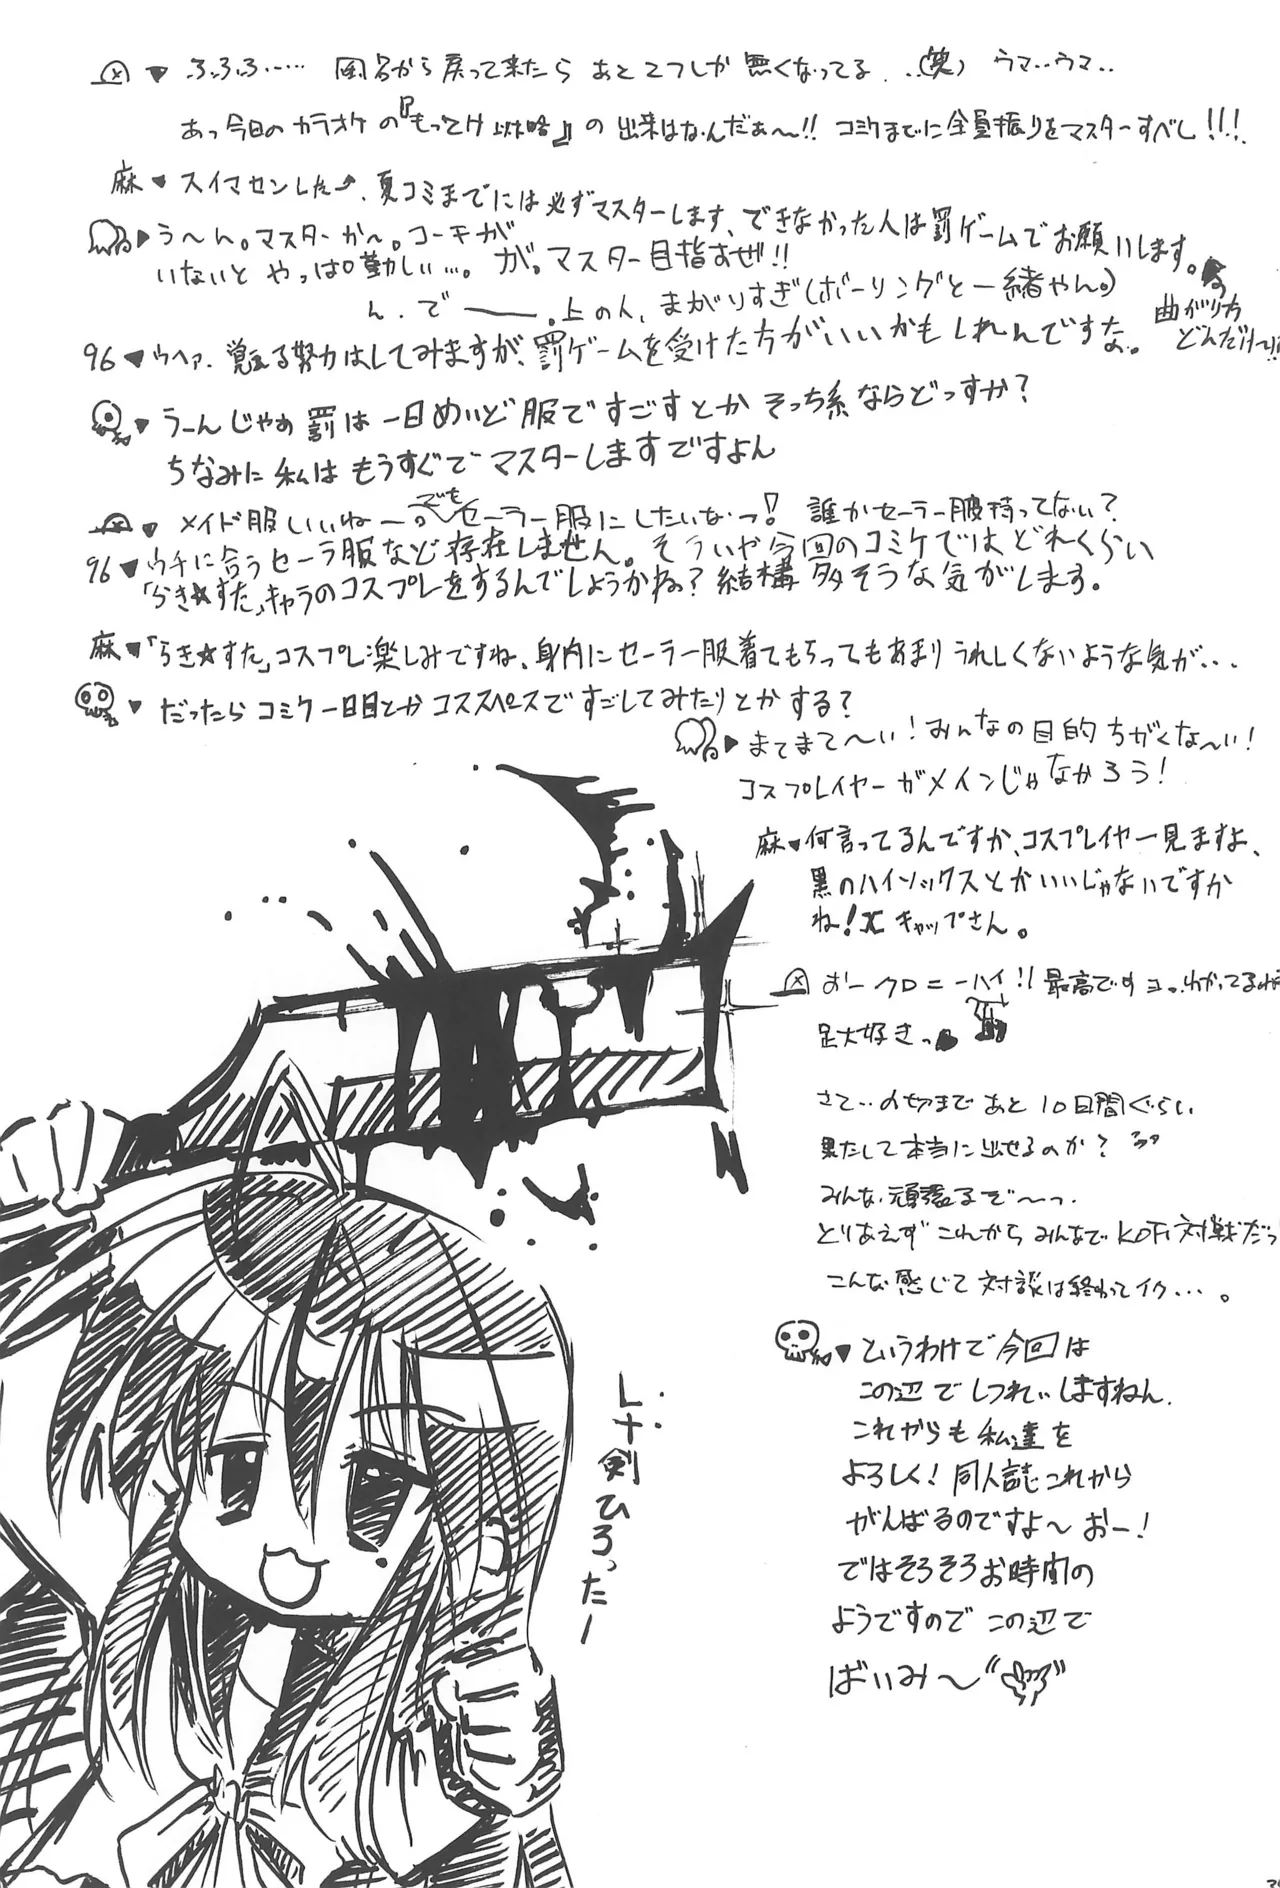 ふふふ…… 風呂から戻って来たら あと2つしか 無くなってる…(笑) ウマ‥ウマ‥
あっ今日のカラオケの『もってけ 以下略』の 出来はなんだぁ〜!! コミケまでに全員振りをマスターすべし!!!
麻♥スイマセンした、夏コミまでには必ずマスターします、できなかった人は罰ゲームでお願いします。
う〜ん。マスターか〜。コーチが
いないと やっぱ難しい…。が。マスター目指すぜ!!
ん. で ──. 上の人、まがりすぎ(ボーリングと一緒やん。)
曲がり方
どんだけ〜!!
96♥ウヘァ. 覚える努力はしてみますが、罰ゲームを受けた方がいいかもしれんですな。
うーんじゃあ罰は一日めいど服ですごすとかそっち系ならどっすか?
ちなみに私はもうすぐでマスターしますですよん
♥ メイド服いいねー。でもセーラー服にしたいなっ! 誰かセーラー服持ってない?
96♥ウチに合うセーラ服など存在しません。そういや今回のコミケではどれくらい
「らき☆すた」キャラのコスプレをするんでしょうかね?結構多そうな気がします。
麻♥「らき☆すた」コスプレ楽しみですね、身内にセーラー服着てもらってもあまりうれしくないような気が…
♥ だったらコミケ一日目とかコススペースですごしてみたりとかする?
まてまて〜い!みんなの目的ちがくな〜い!
コスプレイヤーがメインじゃなかろう!
麻♥何言ってるんですか、コスプレイヤー見ますよ、
黒のハイソックスとかいいじゃないですか
ね!Xキャップさん。
おークロニーハイ!!最高ですヨ…わかってるね
足大好きっ
さて‥〆切まであと10日間ぐらい
果たして本当に出せるのか?
みんな頑張るぞ〜っ
とりあえずこれからみんなでKOF対戦だっ!
こんな感じで対談は終わってイク…。
♥というわけで今回は
この辺でしつれいしますねん.
これからも私達を
よろしく!同人誌これから
がんばるのですよ〜おー!
ではそろそろお時間の
ようですのでこの辺で
ばいみ〜
剣ひろったー